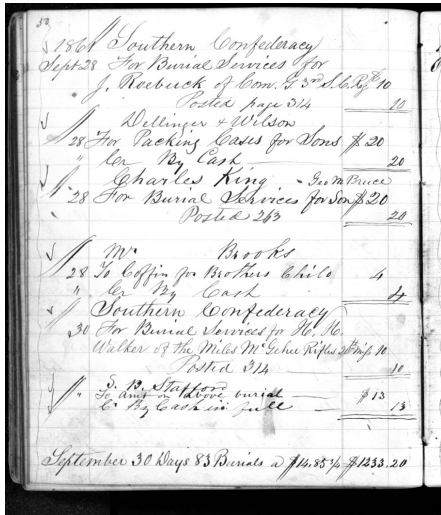 50
1861 Southern Confederacy
Sept 28 For Burial Services for
J. Roebuck of Com. G 3rd S.C. Rgt 10
Posted page 314 10
Dellinger & Wilson
28 For Packing Cases for Sons $ 20
" Cr By Cash 20
Charles King - Geo M Bruce
28 For Burial Services for Son $ 20
Posted 263 20
Mr Brooks
28 To Coffin for Brothers Child 4
" Cr By Cash 4
Southern Confederacy
30 For Burial Services for H. H.
Walker of the Miles McGehee Rifles 20th Miss 10
Posted 314 10
" S. B. Stafford
To amt on above burial $ 13
Cr By Cash in full 13
September 30 Days 83 Burials a $14.85 3/4 $1233.20